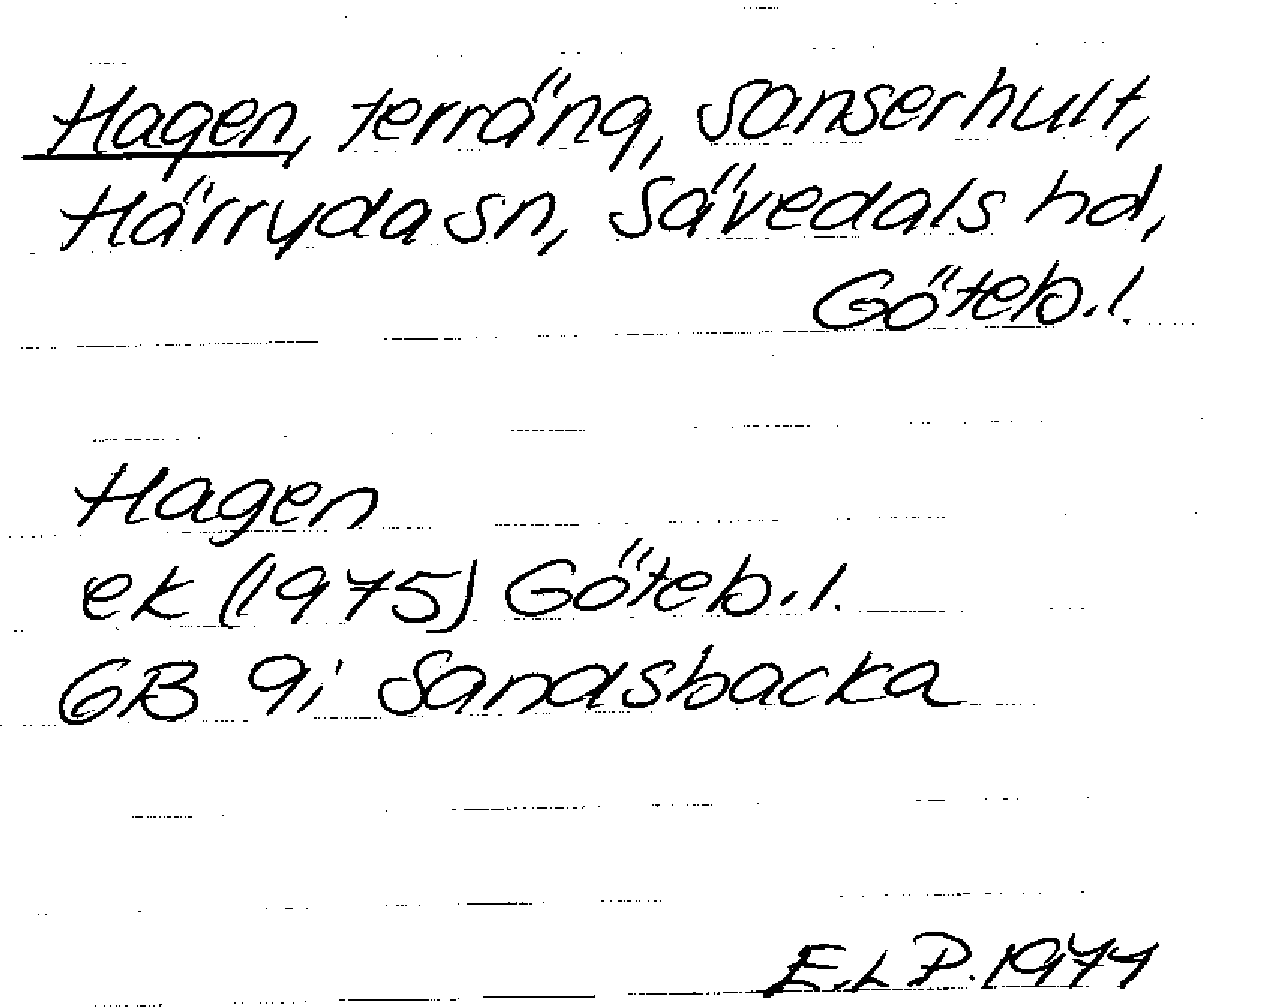 Hagen, terräng, Sanserhult,
Härryda sn, Sävedals hd,
Göteb. l.
Hagen
ek (1975) Göteb. l.
GB 9i Sandsbacka
E.L.P. 1977